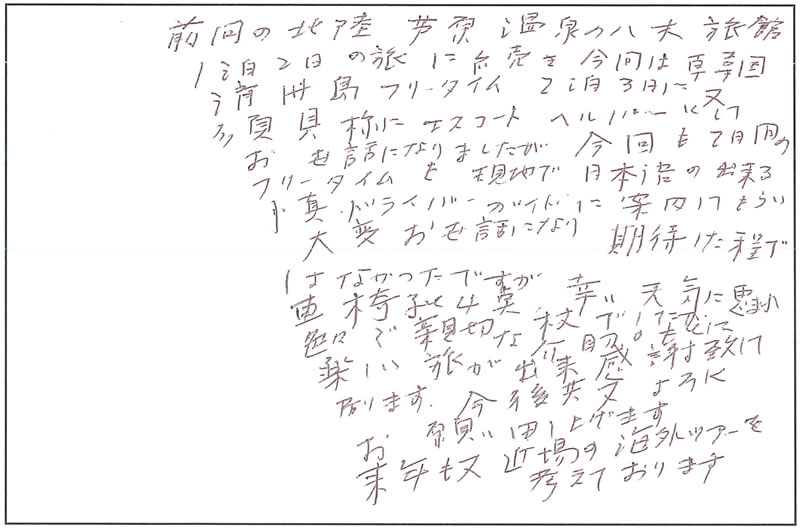 前回の北陸 芦原温泉の八大旅館
1泊2日の旅に続き今回は韓国
済州島フリータイム2泊3日に又
須貝様にエスコートヘルパーにして
お世話になりましたが 今回も2日間の
フリータイムを現地で日本語の出来る
ドライバーガイドに案内してもらい
大変お世話になり 期待した程で
はなかったですが
車椅子と 幸い天気に恵まれ
色々で親切な 杖でしたが
楽しい旅が出来感謝致して
居ります。今後共又よろしく
お願い申し上げます
来年も又近場の海外ツアーを
考えております